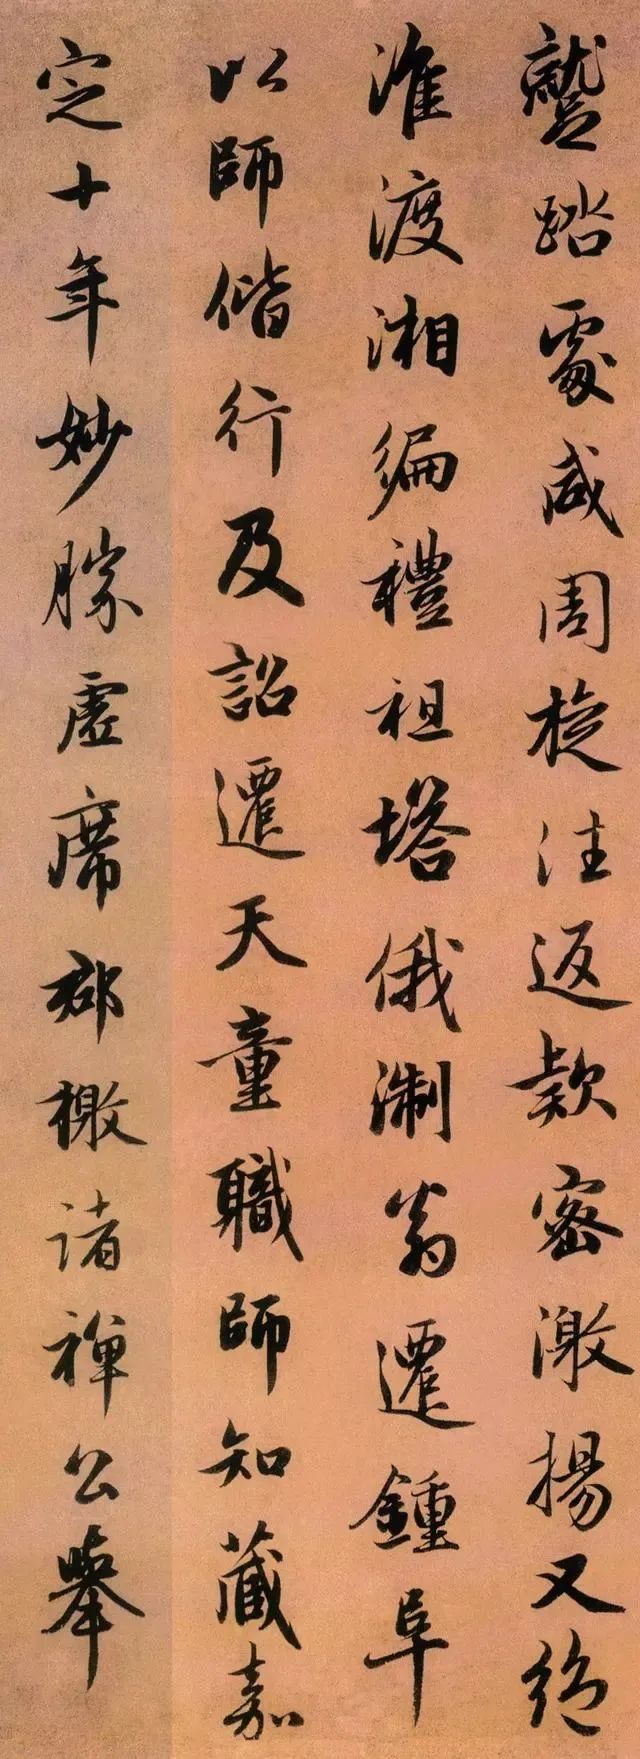 踏處咸周旋往返款密激揚又絶
淮渡湘徧禮祖塔俄淛翁遷鍾阜
以師偕行及詔遷天童職師知藏嘉
定十年妙勝虛席郡檄諸禪公舉